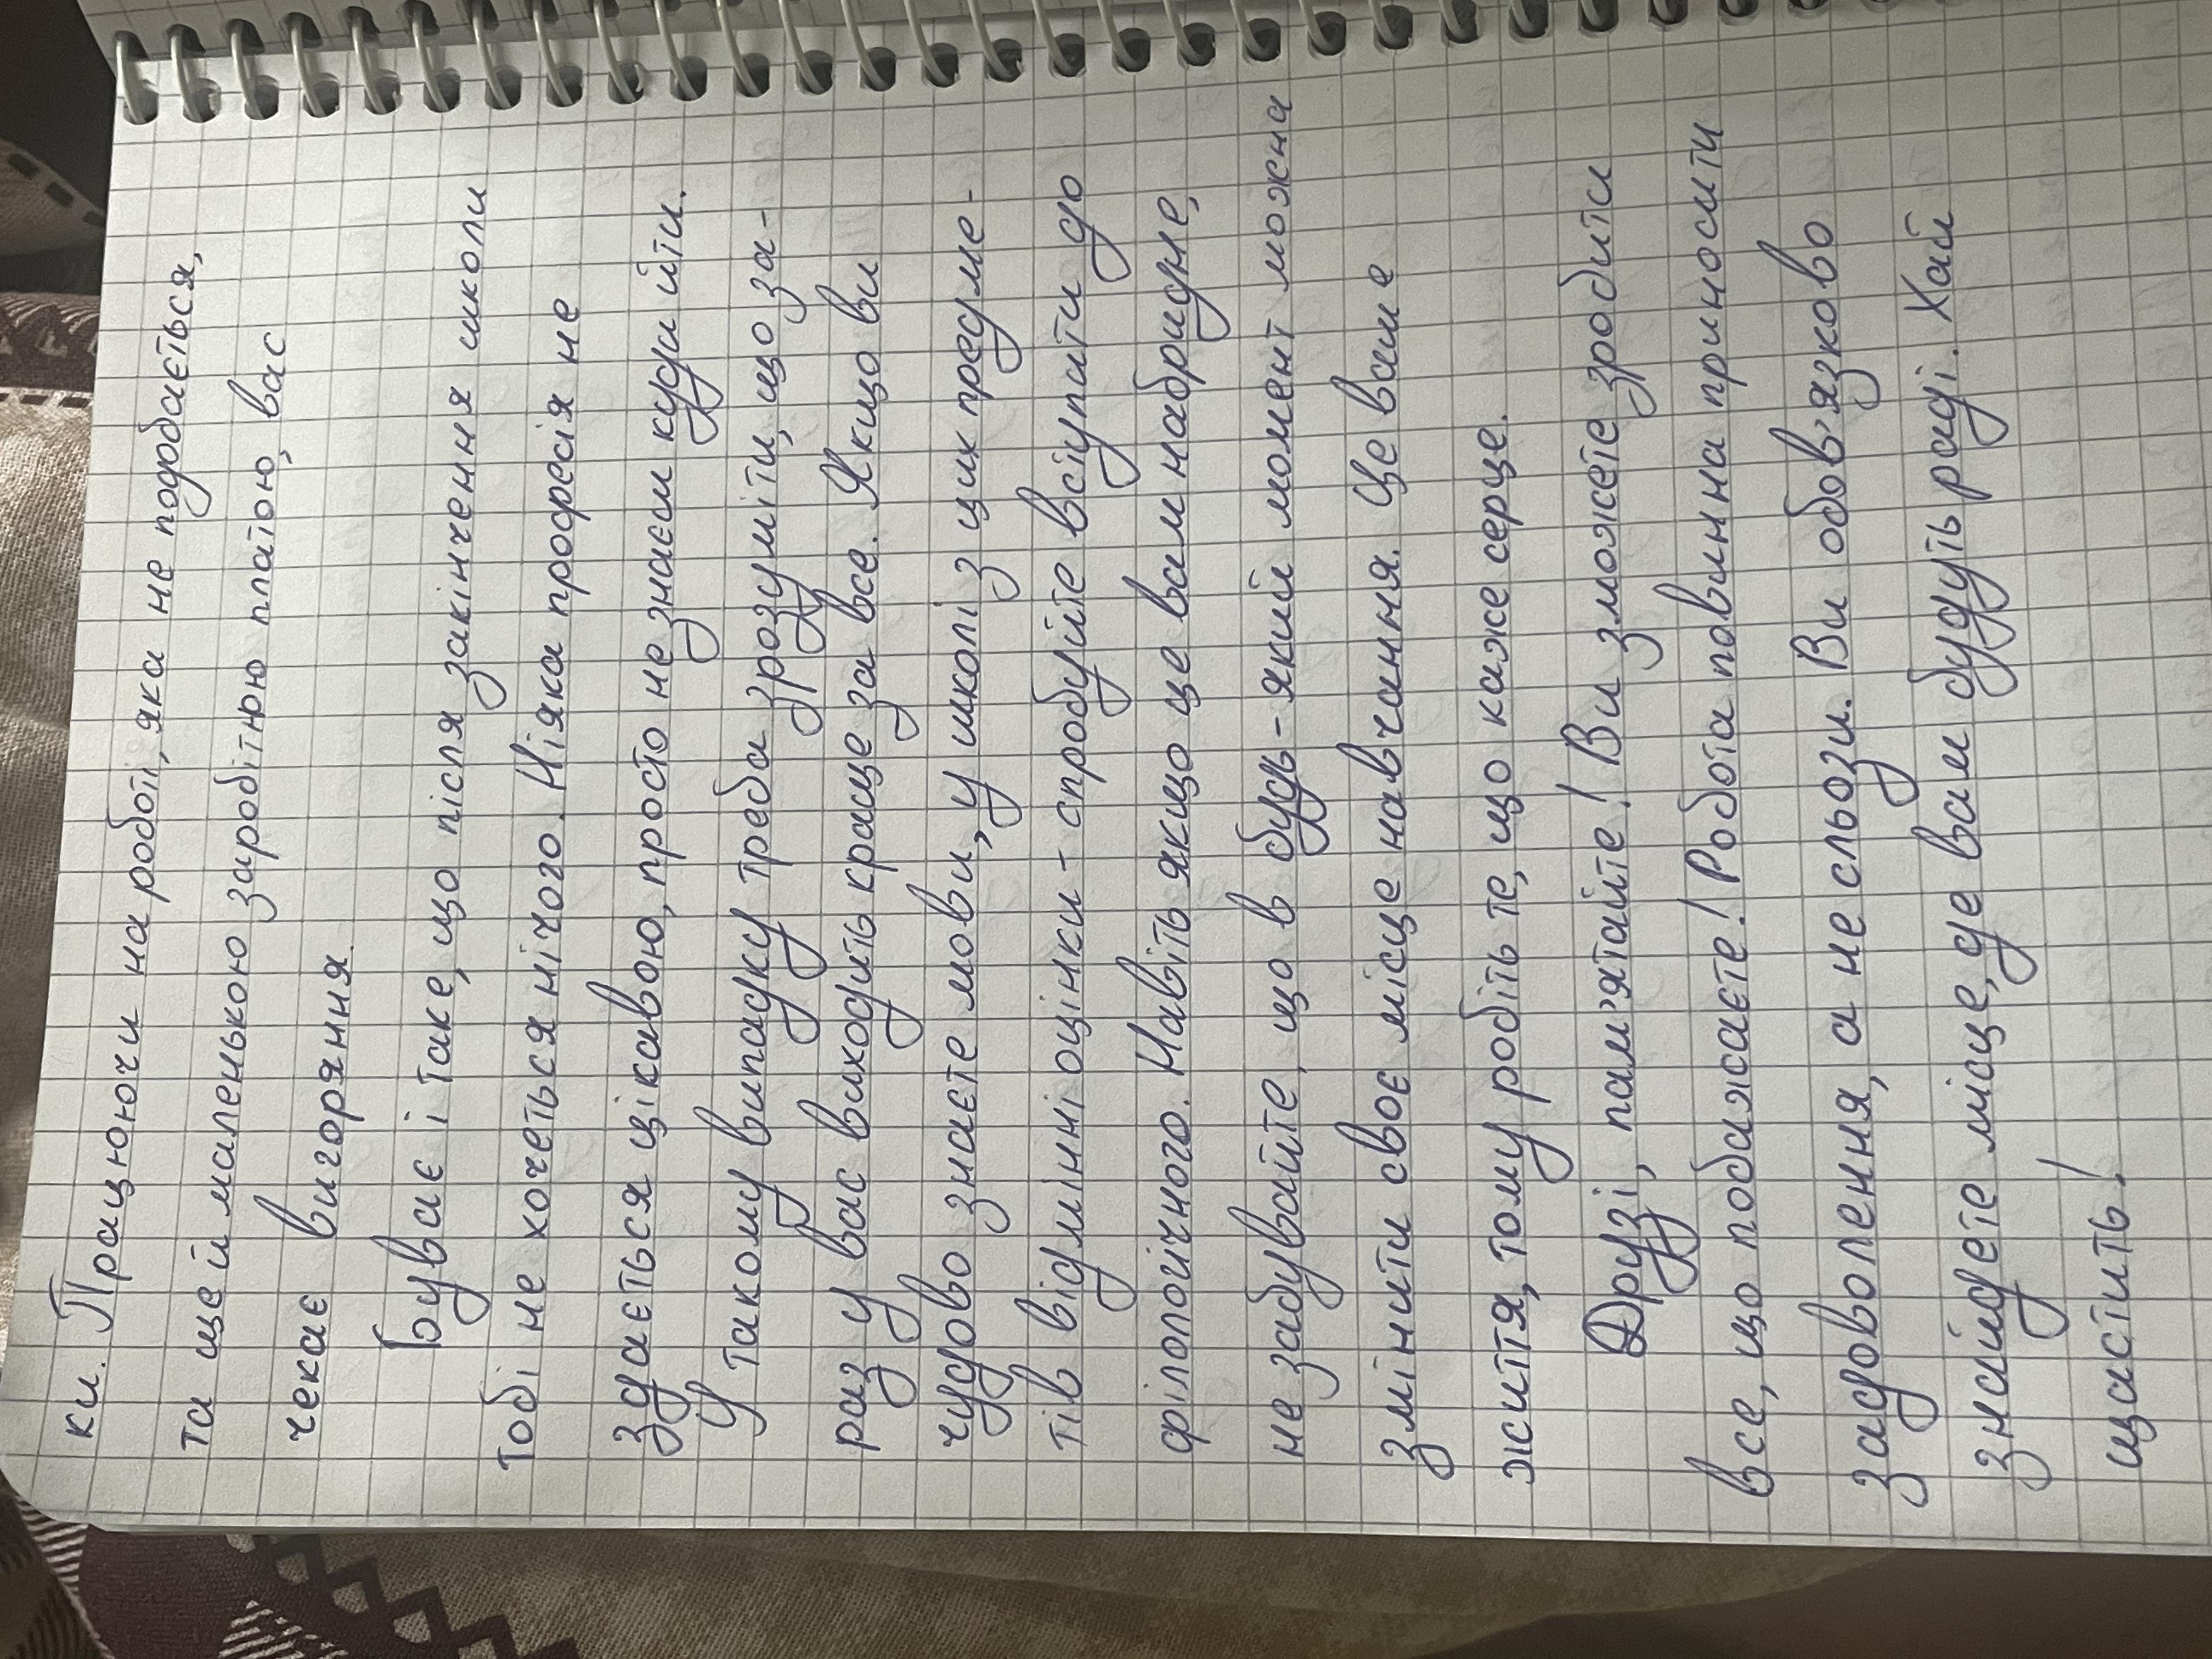 ки. Працюючи на роботі, яка не подобається,
та ще й маленькою заробітню платою, вас
чекає вигоряння.
Буває і таке, що після закінчення школи
тобі не хочеться нічого. Ніяка професія не
здається цікавою, просто не знаєм куди йти.
У такому випадку треба зрозуміти, що за-
раз у вас виходить краще за все. Якщо ви
чудово знаєте мови, у школі з цих предме-
тів відмінні оцінки - спробуйте вступити до
філологічного. Навіть якщо це вам набридне,
не забувайте, що в будь-який момент можна
змінити своє місце навчання. Це ваше
життя, тому робіть те, що каже серце.
Друзі, пам'ятайте! Ви зможете зробити
все, що побажаєте! Робота повинна приносити
задоволення, а не сльози. Ви обов'язково
знайдете місце, де вам будуть раді. Хай
щастить!